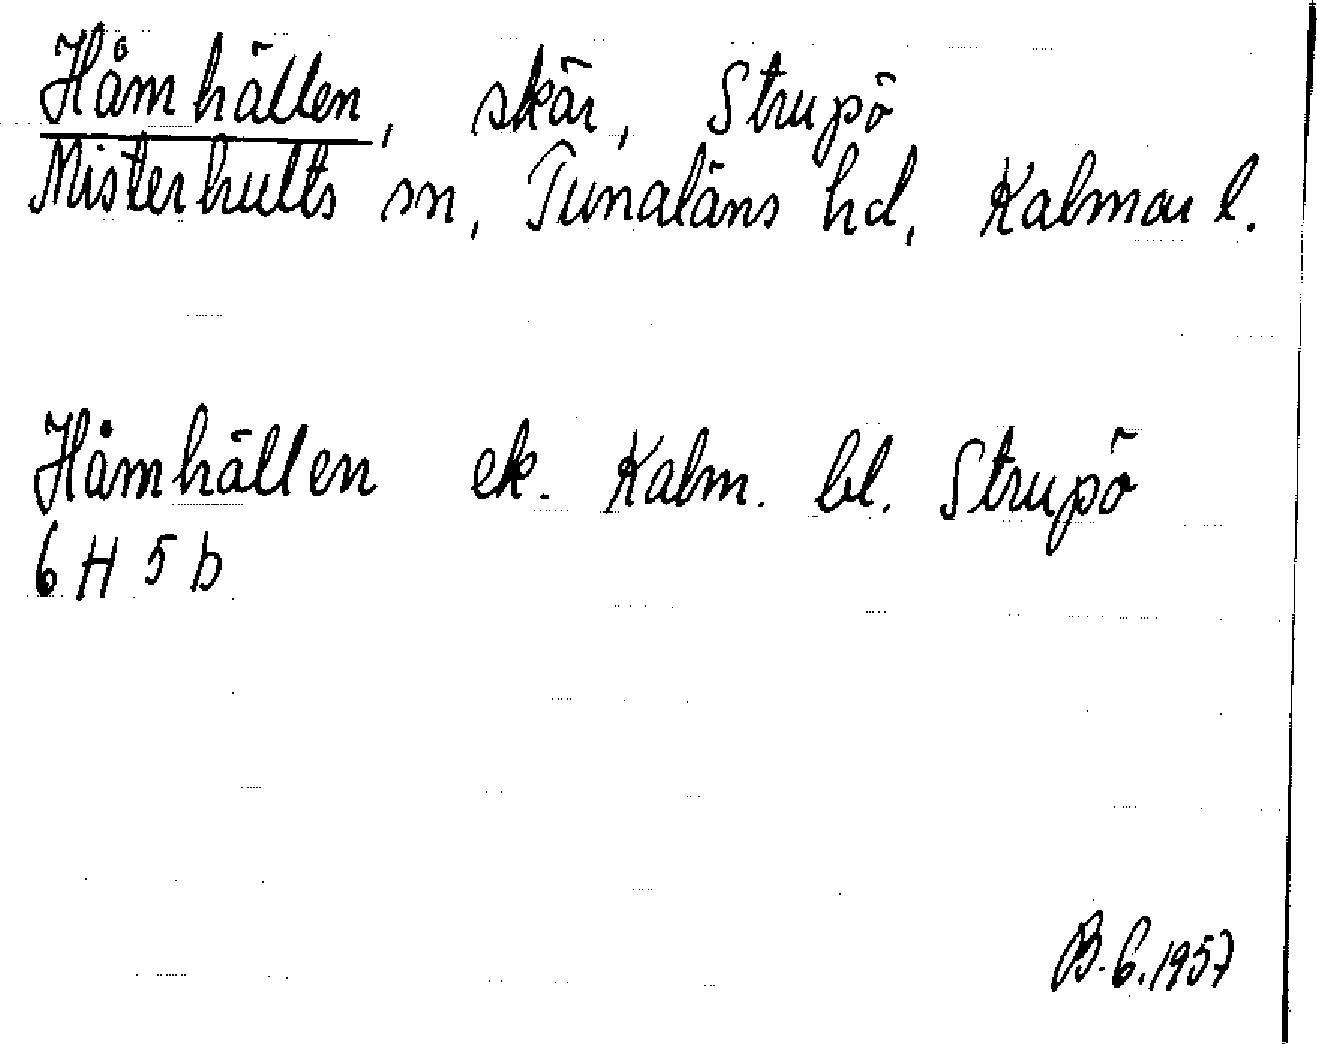 Håmhällen, skär, Strupö
Misterhults sn, Tunaläns hd, Kalmar l.
Håmhällen ek. Kalm. bl. Strupö
6 H 5 b
B.G. 1957